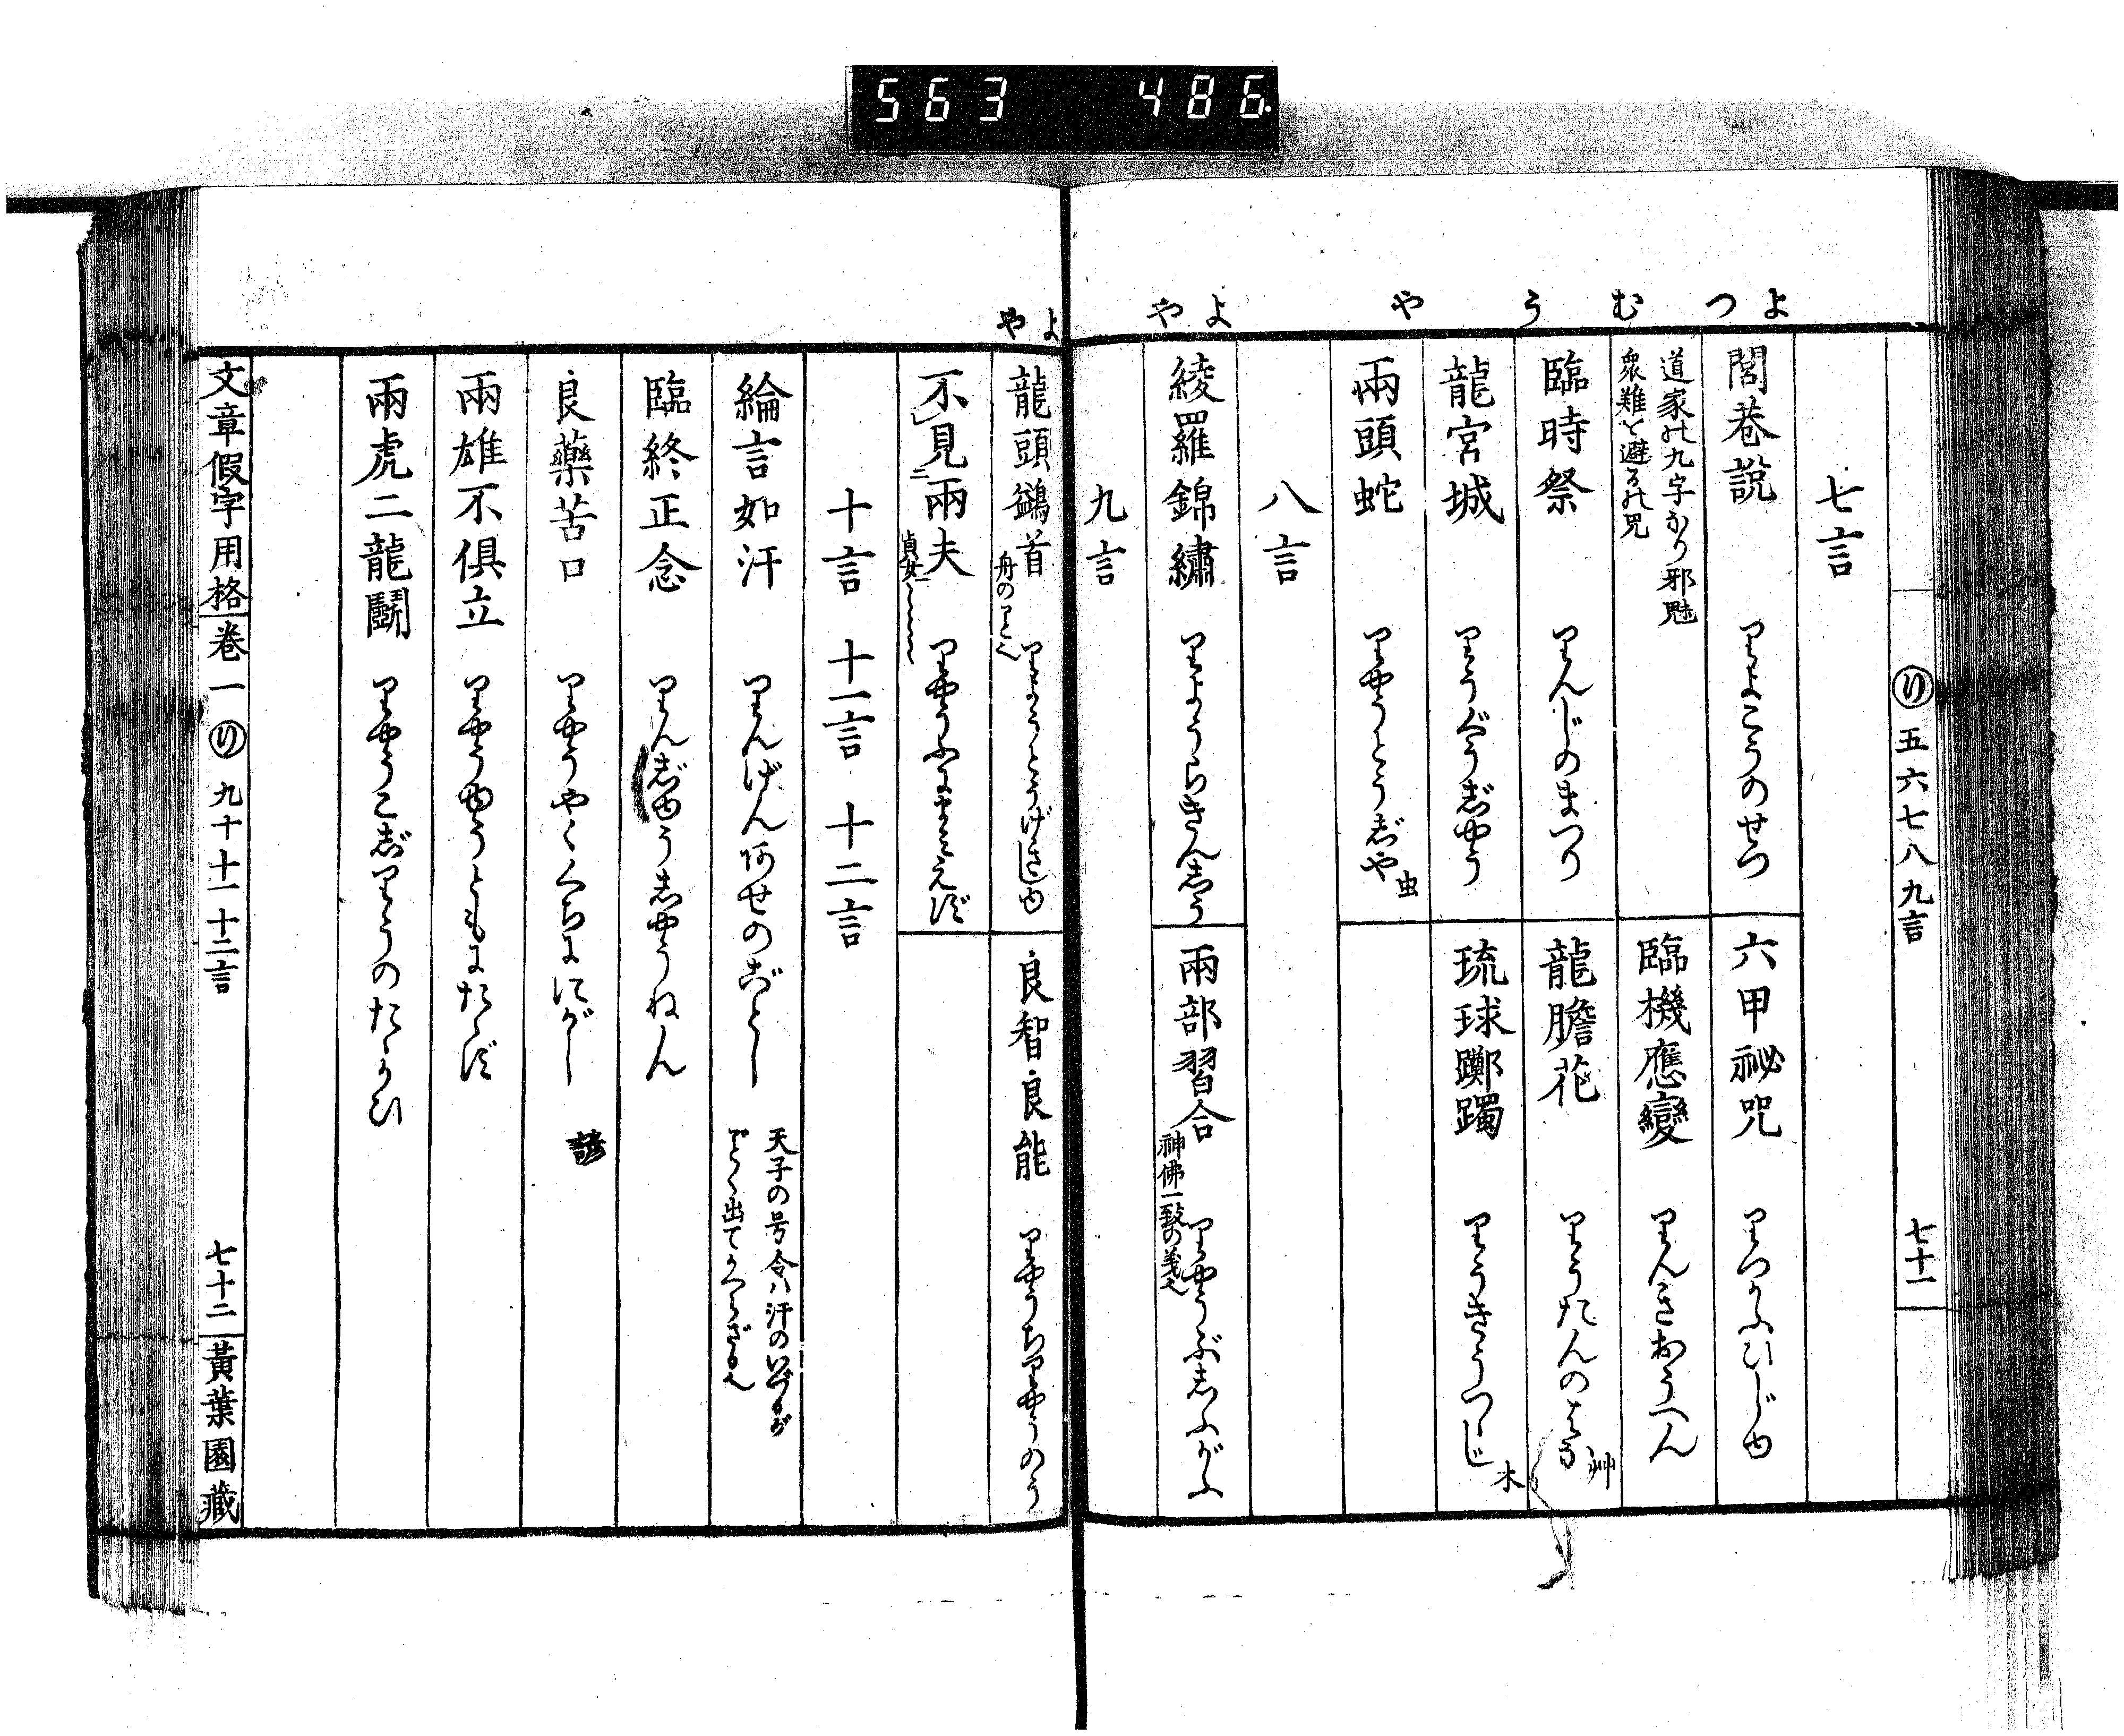 563 486
よ つ む う や よ や
り 五六七八九言 七十一
七言
閭巷說 りよこうのせつ
六甲祕咒 りつかふひじゆ
道家の九字なり邪魅
衆難を避るの咒
臨機應變 りんきおうへん
臨時祭 りんじのまつり
龍膽花 りうたんのはな 艸
龍宮城 りうぐうじやう
琉球躑躅 りうきうつゝじ 木
兩頭蛇 りやうとうじや 虫
八言
綾羅錦繡 りようらきんしう
兩部習合 神佛一致の義也 りやうぶしふがふ
九言
よ や
龍頭鷁首 舟のこと也 りようとうげきしゆ
良智良能 りやうちりやうのう
不見二兩夫一 貞女 りやうふにまみえず
十言 十一言 十二言
綸言如汗 りんげんあせのごとし
天子の号令ハ汗の
出てかへらざる也
臨終正念 りんじゆうしやうねん
良藥苦口 りやうやくくちににがし 諺
兩雄不俱立 りやうゆうともにたゝず
兩虎二龍鬭 りやうこじりうのたゝかひ
文章假字用格 卷一 り 九十十一十二言 七十二 黃葉園藏